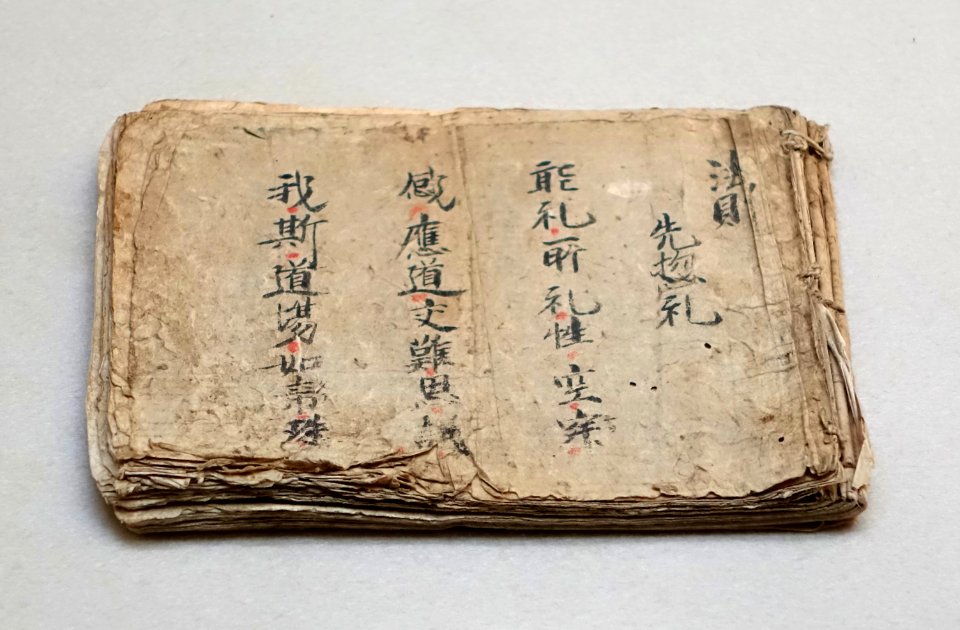 法則
先惣礼
能礼所礼性空寂
感應道交難思議
我斯道場如帝珠